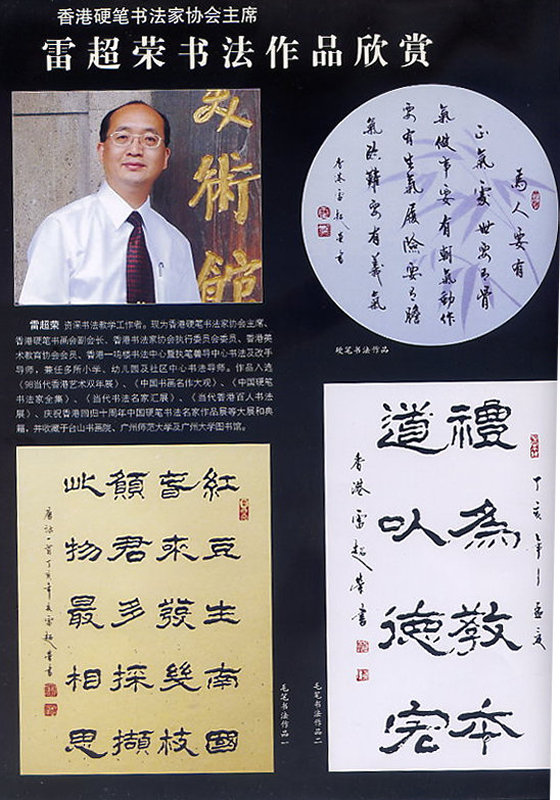 香港硬笔书法家协会主席
雷超荣书法作品欣赏
美術館
為人要有
正氣處世要有骨
氣做事要有朝氣動作
要有生氣履險要有膽
氣臨難要有義氣
香港雷超荣書
硬笔书法作品
雷超荣 资深书法教学工作者。现为香港硬笔书法家协会主席、
香港硬笔书画会副会长、香港书法家协会执行委员会委员、香港美
术教育协会会员、香港一鸣楼书法中心暨执笔善导中心书法及改手
导师，兼任多所小学、幼儿园及社区中心书法导师。作品入选
《98当代香港艺术双年展》、《中国书画名作大观》、《中国硬笔
书法家全集》、《当代书法名家汇展》、《当代香港百人书法
展》、庆祝香港回归十周年中国硬笔书法名家作品展等大展和典
籍，并收藏于台山书画院、广州师范大学及广州大学图书馆。
紅豆生南國
春來發幾枝
願君多採擷
此物最相思
唐詩一首丁亥年夏雷超荣書
毛笔书法作品一
丁亥年孟夏
禮為教本
道以德宏
香港雷超榮書
毛笔书法作品二